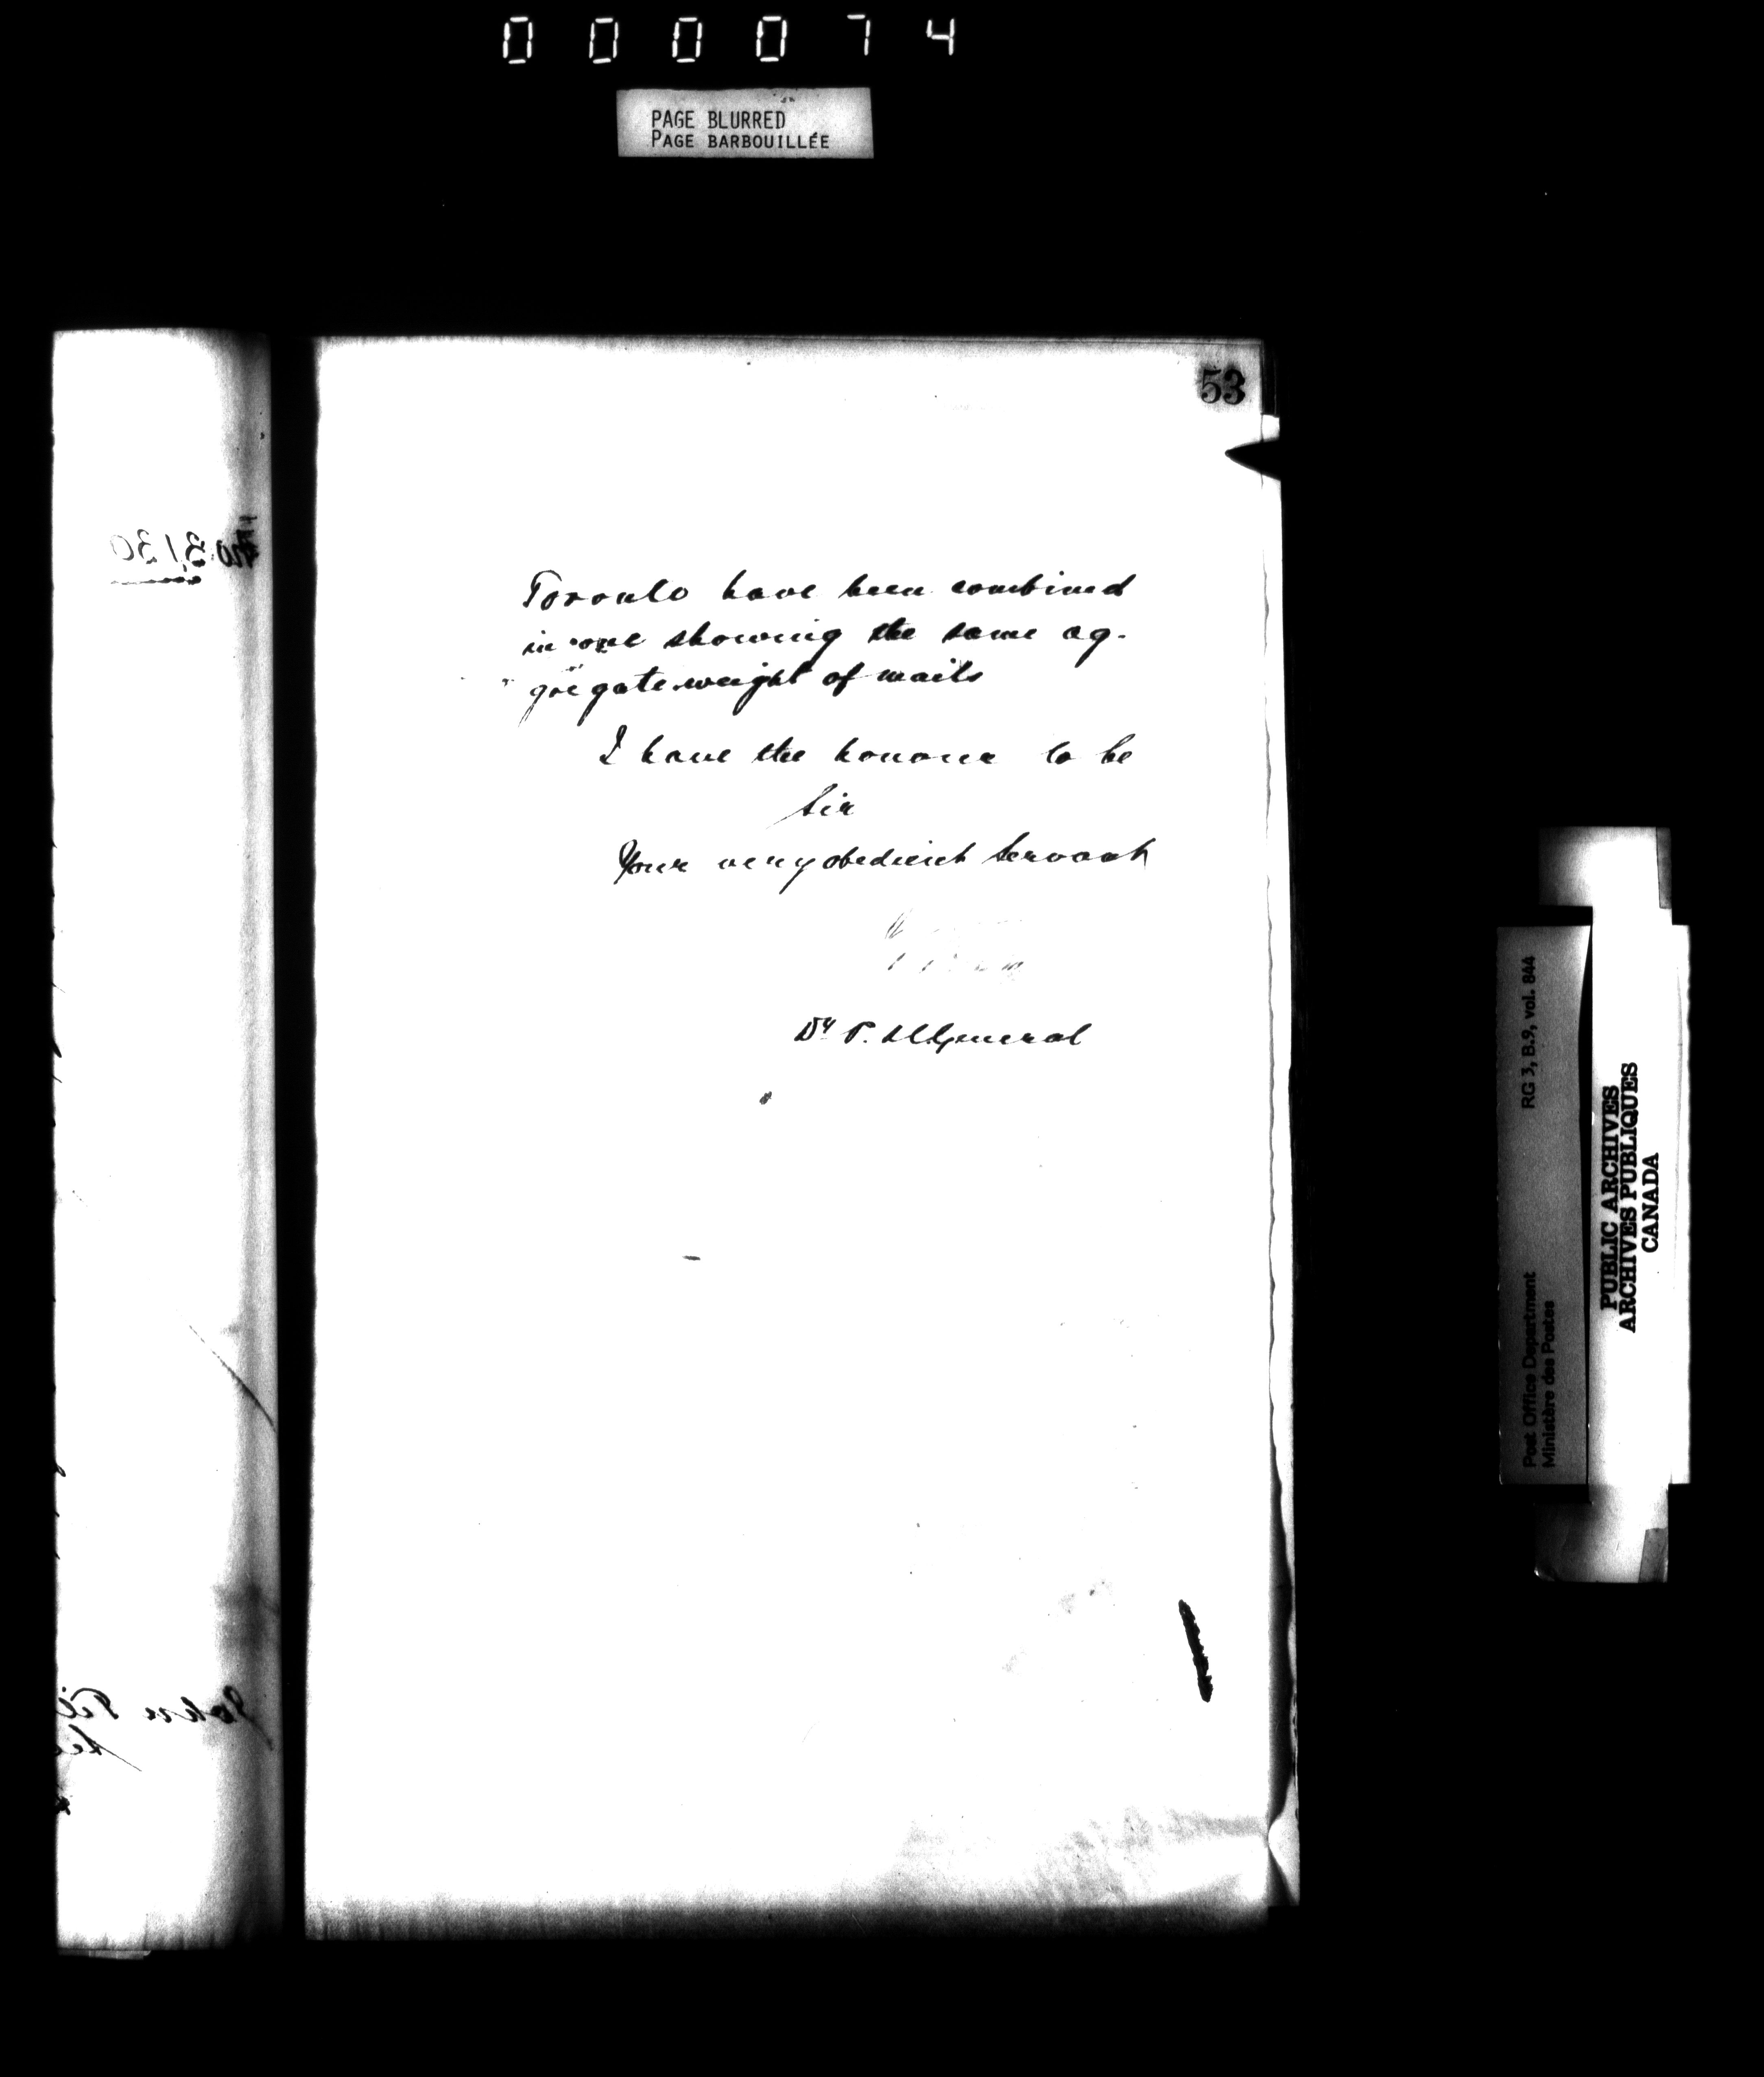 000074
PAGE BLURRED
PAGE BARBOUILLÉE
53
No 3130
Toronto have been combined
in one showing the same ag-
gregate weight of mails
I have the honour to be
Sir
Your very obedient Servant
Dy P. M General
John
RG 3, B.9, vol. 844
Post Office Department
Ministère des Postes
PUBLIC ARCHIVES
ARCHIVES PUBLIQUES
CANADA